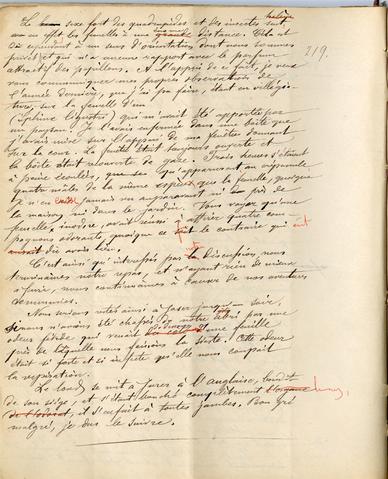 Le sexe fort des quadrupèdes et des insectes suit
en effet les femelles à une grande distance. Cela est
dû cependant à un sens d'orientation dont nous sommes
privés et qui n'a aucun rapport avec le parfum
attractif des papillons. À l'appui de ce fait, je veux
vous communiquer mes propres observations de
l'année dernière, que j'ai pu faire, étant en villégia-
ture, sur la femelle d'un
(Sphinx ligustri) qui m'avait été apportée par
un paysan. Je l'avais enfermée dans une boîte que
j'avais mise sur l'appui de ma fenêtre donnant
sur la cour. La fenêtre était toujours ouverte et
la boîte était recouverte de gaze. Trois heures s'étaient
à peine écoulées, que
quatre mâles de la même espèce que la femelle, quoique
je n'en eusse jamais vu auparavant ni près de
la maison ni dans le jardin. Vous voyez qu'une
femelle, inodore, avait réussi à attirer quatre com-
pagnons odorants, quoique ce fût le contraire qui eût
aurait dû avoir lieu.
C'est ainsi qu'interrompus par la discussion nous
terminâmes notre repas, et n'ayant rien de mieux
à faire, nous continuâmes à causer de nos aventures
communes.
Nous serions restés ainsi à jaser jusqu'au soir,
si nous n'avions été chassés de notre abri par une
odeur fétide qui venait d'une feuille
près de laquelle nous faisions la sieste. Cette odeur
était si forte et si infecte qu'elle nous coupait
la respiration.
Le lord se mit à jurer à l'anglaise, bondit
de son siège, et s'étant bouché complètement
de l'odorat, il s'enfuit à toutes jambes. Bon gré
malgré, je dus le suivre.
219.